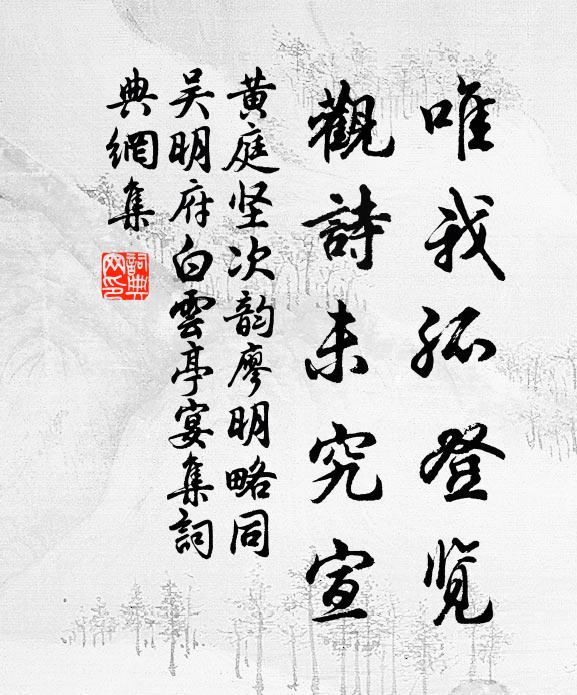 唯我孤登览
觀詩未究宣
黄庭坚次韵廖明略同
吴明府白雲亭宴集詞
典網集
詞典網印